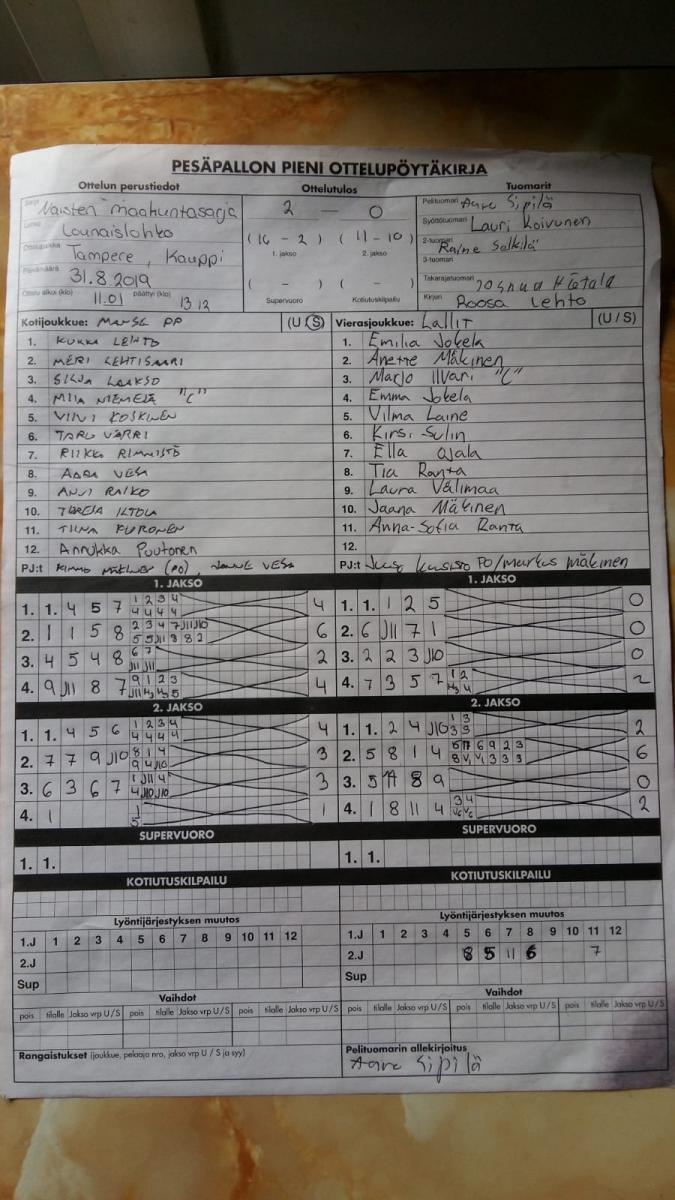 PESÄPALLON PIENI OTTELUPÖYTÄKIRJA
Ottelun perustiedot
Naisten maakuntasarja
Lounaislohko
Tampere, Kauppi
Päivämäärä 31.8.2019
Ottelu alkoi (klo) 11.01 päättyi (klo) 13 12
Ottelutulos
2 — 0
(16 - 2) (11 - 10)
1. jakso 2. jakso
( - ) ( - )
Supervuoro Kotiutuskilpailu
Tuomarit
Pelituomari Aare Sipilä
Syöttötuomari Lauri Koivunen
2-tuomari Raine Selkilä
3-tuomari
Takarajatuomari Joshua Hietala
Kirjuri Roosa Lehto
Kotijoukkue: MANSE PP (U/S)
1. KUKKA LEHTO
2. MERI LEHTISAARI
3. SILJA LAAKSO
4. MIIA NIEMELÄ "C"
5. VIIVI KOSKINEN
6. TARU VÄRRI
7. RIIKKA RINNISTÖ
8. AADA VESA
9. ANVI RAIKO
10. TEREJA ILTOLA
11. TIINA KURONEN
12. Annukka Puutonen
PJ:t
Vierasjoukkue: Lallit (U / S)
1. Emilia Jokela
2. Anette Mäkinen
3. Marjo Ilvari "C"
4. Emma Jokela
5. Vilma Laine
6. Kirsi Sulin
7. Ella Ojala
8. Tia Ranta
9. Laura Välimaa
10. Jaana Mäkinen
11. Anna-Sofia Ranta
12.
PJ:t Juso Kuusisto PO/Markus Mäkinen
1. JAKSO
1. 1. 4 5 7 1 2 3 4 4
4 4 4 4
2. 1 1 5 8 2 3 4 7 J11 J10 6
5 5 J11 8 8 2
3. 4 5 4 8 6 7 2
J11 J11
4. 9 J11 8 7 9 1 2 3 4
1. JAKSO
1. 1. 1 2 5 0
2. 6 J11 7 1 0
3. 2 2 3 J10 0
4. 7 3 5 7 1 2 2
2. JAKSO
1. 1. 4 5 6 1 2 3 4 4
4 4 4 4
2. 7 7 9 J10 8 1 4 3
9 4 J10
3. 6 3 6 7 1 J11 4 3
4 J10 J10
4. 1 1 1
5
2. JAKSO
1. 1. 2 4 J10 1 3 2
3 3
2. 5 8 1 4 6 9 2 3 6
3. 5 8 9 0
4. 1 8 11 4 3 4 2
SUPERVUORO
1. 1.
SUPERVUORO
1. 1.
KOTIUTUSKILPAILU
KOTIUTUSKILPAILU
Lyöntijärjestyksen muutos
1.J 1 2 3 4 5 6 7 8 9 10 11 12
2.J
Sup
Lyöntijärjestyksen muutos
1.J 1 2 3 4 5 6 7 8 9 10 11 12
2.J 8 5 11 6 7
Sup
Vaihdot
pois tilalle Jakso vrp U/S pois tilalle Jakso vrp U/S pois tilalle Jakso vrp U/S
Vaihdot
pois tilalle Jakso vrp U/S pois tilalle Jakso vrp U/S pois tilalle Jakso vrp U/S
Rangaistukset (joukkue, pelaaja nro, jakso vrp U / S ja syy)
Pelituomarin allekirjoitus
Aare Sipilä